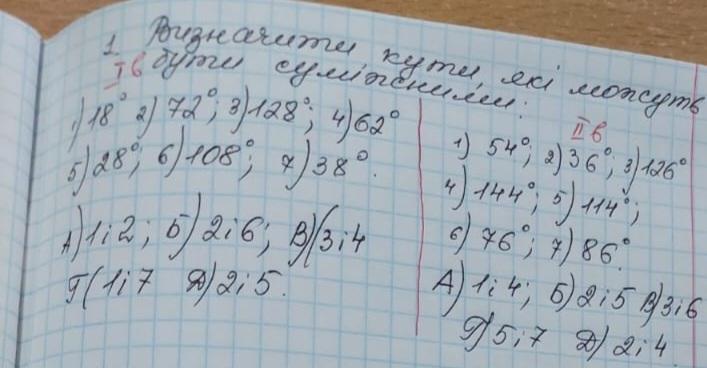 1. Визначити кути, які можуть
бути суміжними:
І в
1) 18° 2) 72°; 3) 128°; 4) 62°
5) 28°; 6) 108°; 7) 38°.
А) 1 і 2; Б) 2 і 6; В) (3 і 4
Г( 1 і 7 Д) 2 і 5.
ІІ в
1) 54°; 2) 36°; 3) 126°
4) 144°; 5) 114°;
6) 76°; 7) 86°.
А) 1 і 4; Б) 2 і 5 В) 3 і 6
Г) 5 і 7 Д) 2 і 4